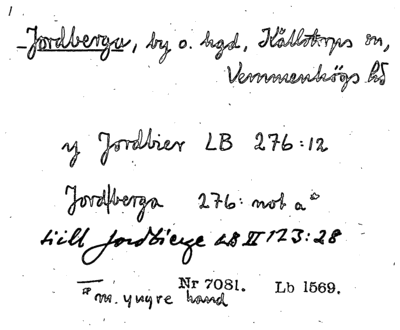 Jordberga, by o. hgd, Källstorps sn,
Vemmenhögs hd
y Jordbier LB 276:12
Jordberga 276: not a*
till Jordbierge LB II 123:28
Nr 7081. Lb 1569.
* m. yngre hand